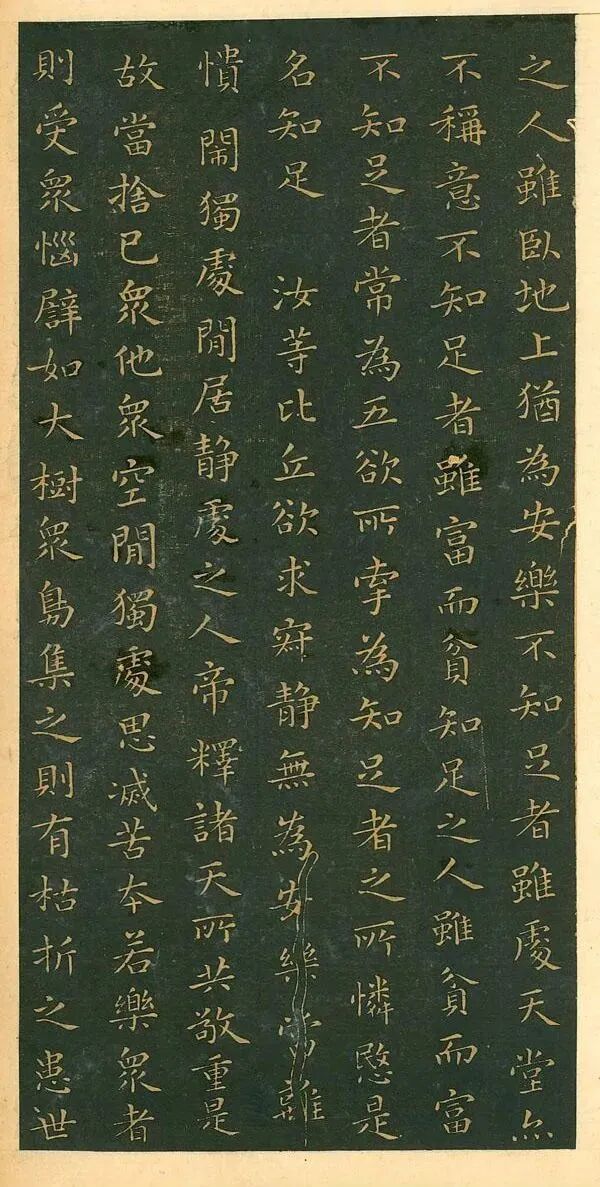 之人雖臥地上猶為安樂不知足者雖處天堂亦
不稱意不知足者雖富而貧知足之人雖貧而富
不知足者常為五欲所牽為知足者之所憐愍是
名知足 汝等比丘欲求寂靜無為安樂當離
憒閙獨處閒居靜處之人帝釋諸天所共敬重是
故當捨己眾他眾空閒獨處思滅苦本若樂眾者
則受眾惱譬如大樹眾鳥集之則有枯折之患世